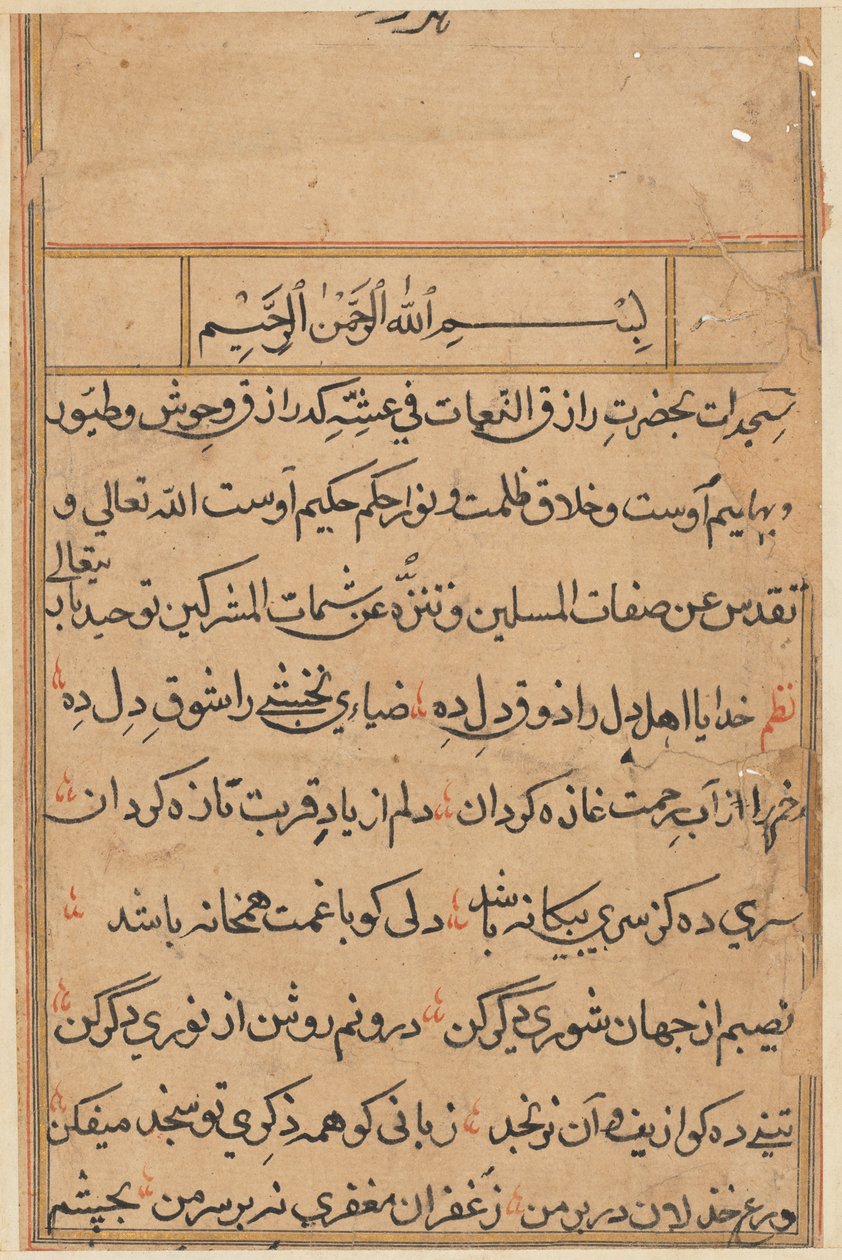 بسم الله الرحمن الرحيم
سجدات بحضرتِ رازق النعمات في عشتِه كه رازق وحوش و طيور
و بهايم اوست و خلاق ظلمت و نوار حكم حكيم اوست الله تعالي و
تقدس عن صفات المسلين و تنزّه عن شمات المشركين توحيد باب
يتعالى
نظم خدايا اهل دل را ذوقِ دلِ ده ضياءي نخشبي را شوقِ دِل دِه
رخم را از آبِ رحمت غازه كردان دلم از يادِ قربت تازه كردان
سري ده كز سري بيكانه باشد دلى كو با غمت همخانه باشد
نصيبم از جهان شوري ديگر كن درونم روشن از نوري دگر كن
تني ده كو از نرنجد زبانى كو همه ذِكرِي تو سنجد ميفكن
درع خذلان در بر من ز غفران مغفري نه بر سر من بچشم